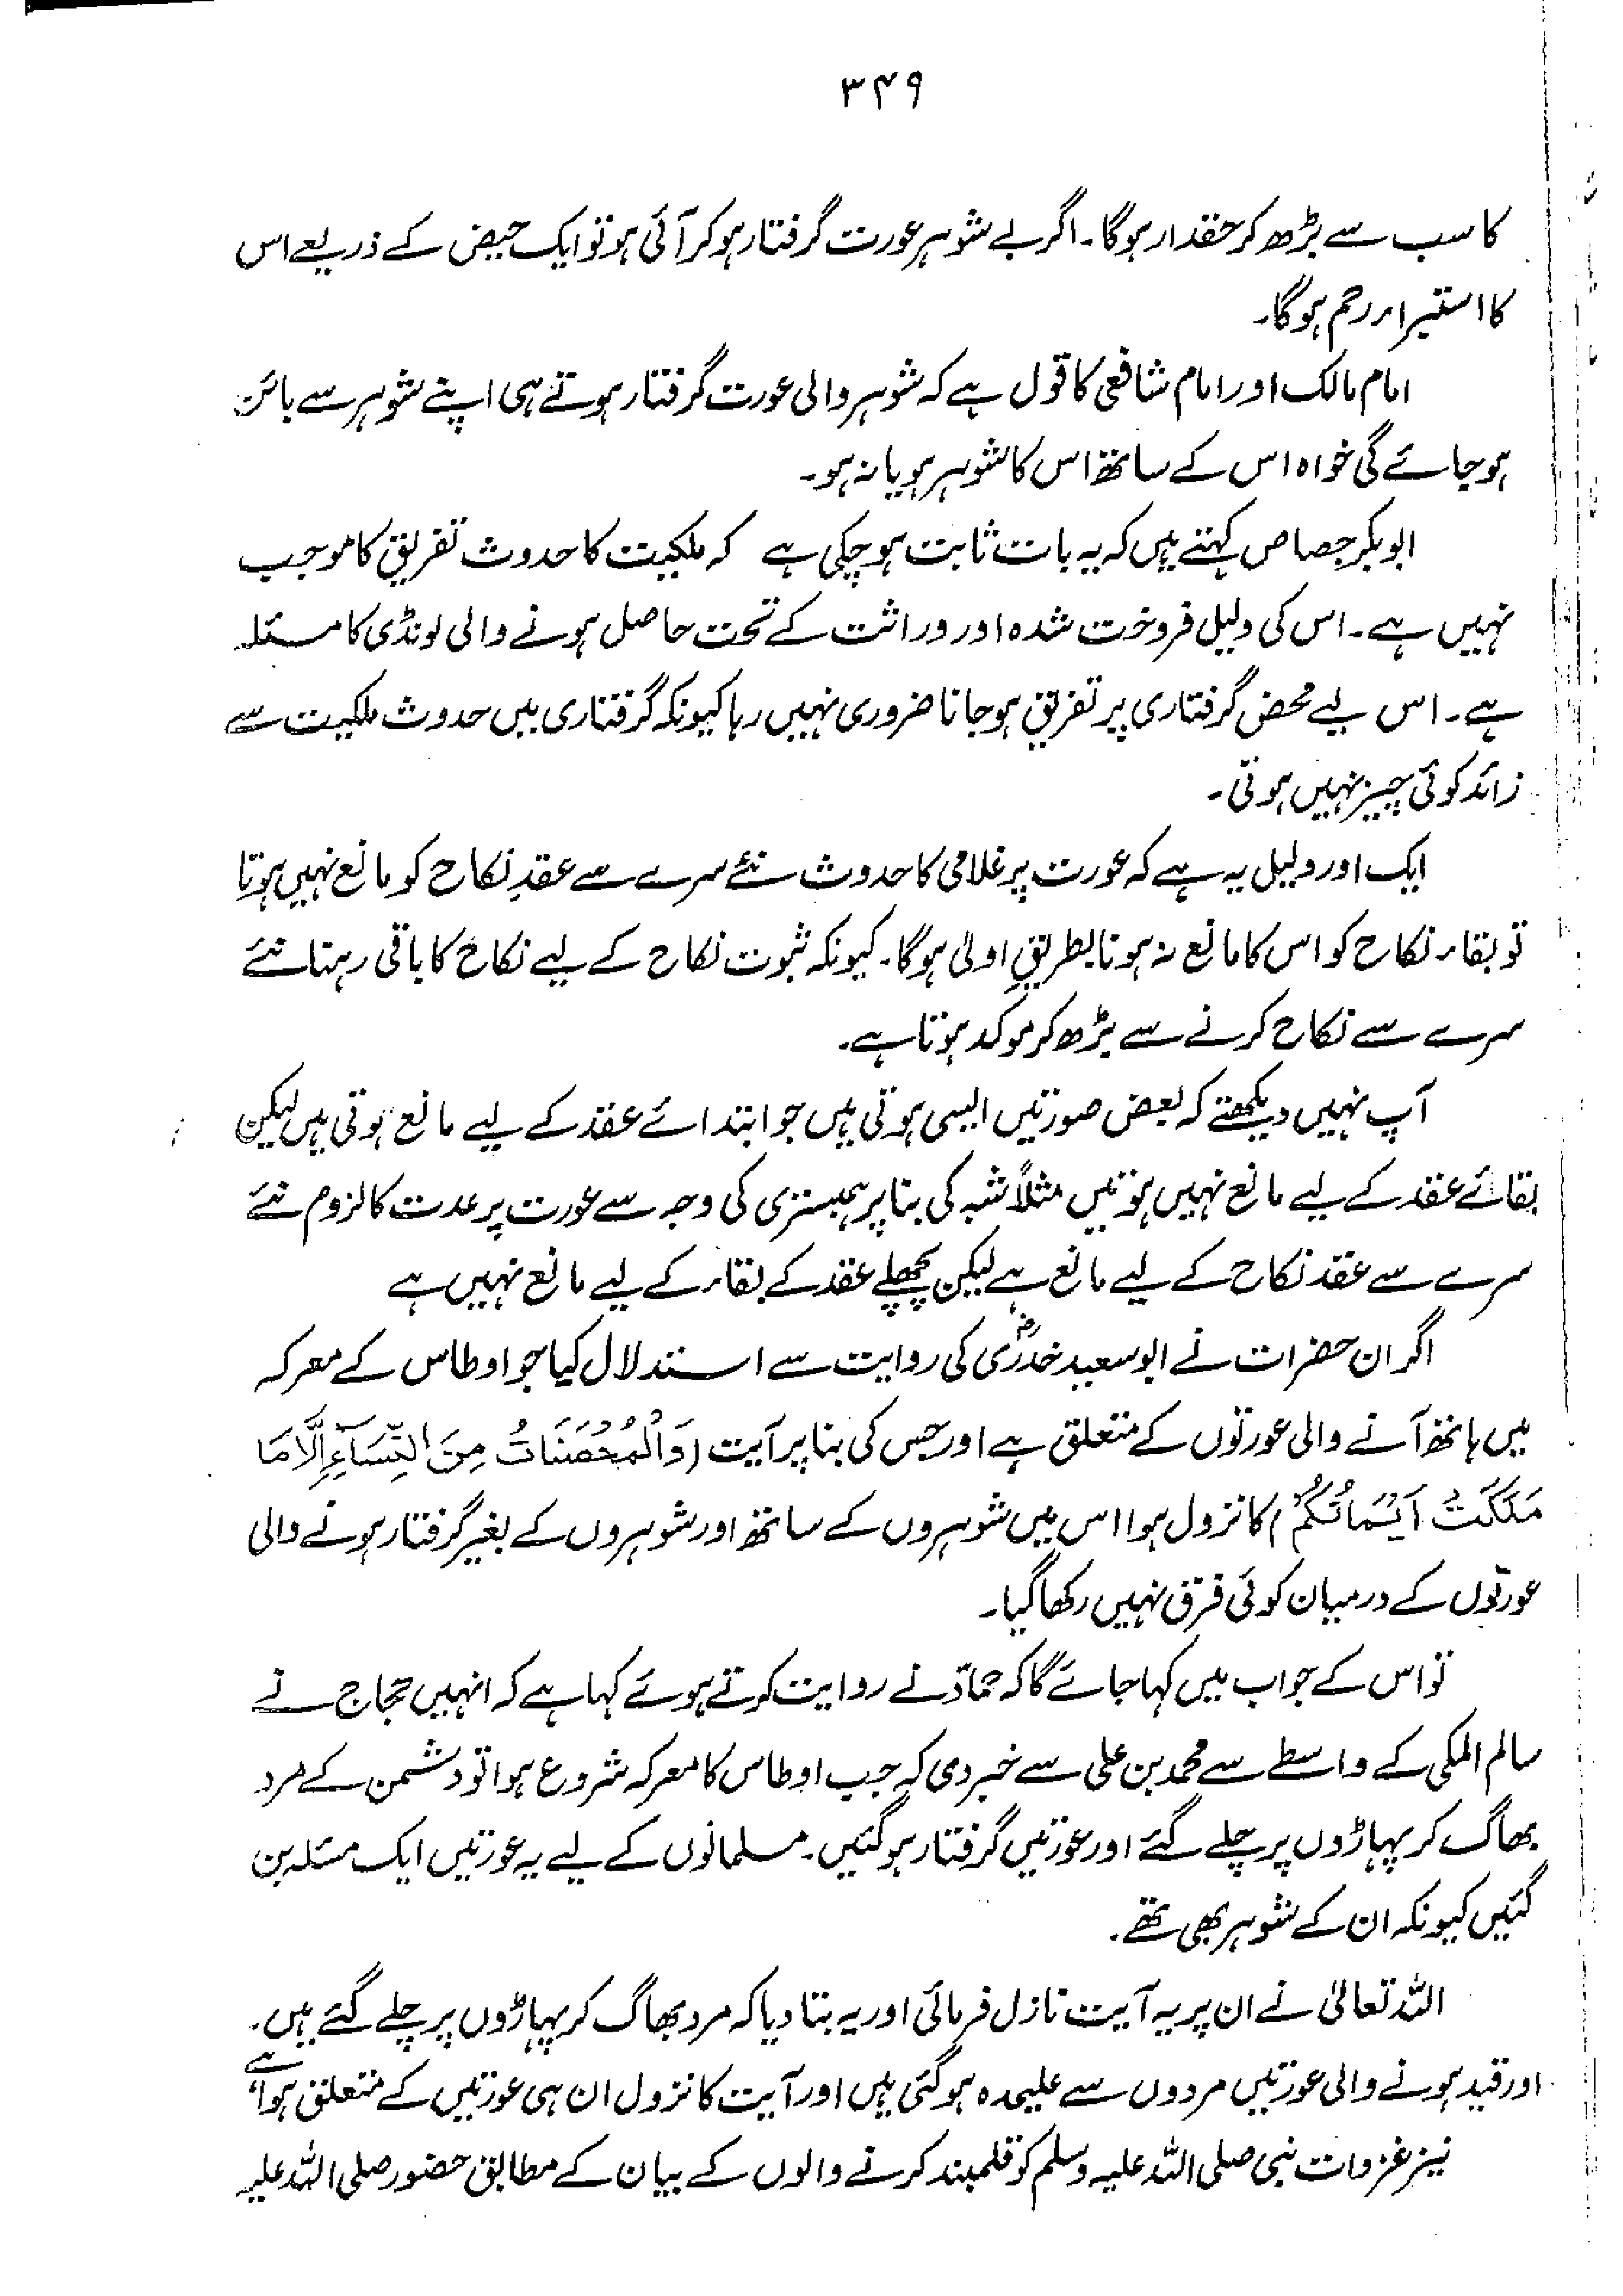 ۳۴۹
کا سب سے بڑھ کر حقدار ہوگا۔ اگر بے شوہر عورت گرفتار ہو کر آئی ہو تو ایک حیض کے ذریعے اس
کا استبراء رحم ہوگا۔
امام مالک اور امام شافعی کا قول ہے کہ شوہر والی عورت گرفتار ہوتے ہی اپنے شوہر سے بائن
ہو جائے گی خواہ اس کے ساتھ اس کا شوہر ہو یا نہ ہو۔
ابوبکر جصاص کہتے ہیں کہ یہ بات ثابت ہو چکی ہے کہ ملکیت کا حدوث تفریق کا موجب
نہیں ہے۔ اس کی دلیل فروخت شدہ اور وراثت کے تحت حاصل ہونے والی لونڈی کا مسئلہ
ہے۔ اس لیے محض گرفتاری پر تفریق ہو جانا ضروری نہیں رہا کیونکہ گرفتاری میں حدوث ملکیت سے
زائد کوئی چیز نہیں ہوتی۔
ایک اور دلیل یہ ہے کہ عورت پر غلامی کا حدوث نئے سرے سے عقدِ نکاح کو مانع نہیں ہوتا
تو بقاء نکاح کو اس کا مانع نہ ہونا بطریقِ اولیٰ ہوگا۔ کیونکہ ثبوت نکاح کے لیے نکاح کا باقی رہنا نئے
سرے سے نکاح کرنے سے بڑھ کر موکد ہوتا ہے۔
آپ نہیں دیکھتے کہ بعض صورتیں ایسی ہوتی ہیں جو ابتدائے عقد کے لیے مانع ہوتی ہیں لیکن
بقائے عقد کے لیے مانع نہیں ہوتیں مثلاً شبہ کی بنا پر ہمبستری کی وجہ سے عورت پر عدت کا لزوم نئے
سرے سے عقد نکاح کے لیے مانع ہے لیکن پچھلے عقد کے بقاء کے لیے مانع نہیں ہے
اگر ان حضرات نے ابوسعید خدریؓ کی روایت سے استدلال کیا جو اوطاس کے معرکہ
میں ہاتھ آنے والی عورتوں کے متعلق ہے اور جس کی بنا پر آیت (وَالْمُحْصَنَاتُ مِنَ النِّسَآءِ اِلَّا مَا
مَلَكَتْ اَيْمَانُكُمْ) کا نزول ہوا اس میں شوہروں کے ساتھ اور شوہروں کے بغیر گرفتار ہونے والی
عورتوں کے درمیان کوئی فرق نہیں رکھا گیا۔
تو اس کے جواب میں کہا جائے گا کہ حمادؒ نے روایت کرتے ہوئے کہا ہے کہ انہیں حجاج نے
سالم المکی کے واسطے سے محمد بن علی سے خبر دی کہ جب اوطاس کا معرکہ شروع ہوا تو دشمن کے مرد
بھاگ کر پہاڑوں پر چلے گئے اور عورتیں گرفتار ہو گئیں۔ مسلمانوں کے لیے یہ عورتیں ایک مسئلہ بن
گئیں کیونکہ ان کے شوہر بھی تھے۔
اللہ تعالیٰ نے ان پر یہ آیت نازل فرمائی اور یہ بتا دیا کہ مرد بھاگ کر پہاڑوں پر چلے گئے ہیں۔
اور قید ہونے والی عورتیں مردوں سے علیحدہ ہو گئی ہیں اور آیت کا نزول ان ہی عورتیں کے متعلق ہوا ہے،
نیز غزوات نبی صلی اللہ علیہ وسلم کو قلمبند کرنے والوں کے بیان کے مطابق حضور صلی اللہ علیہ